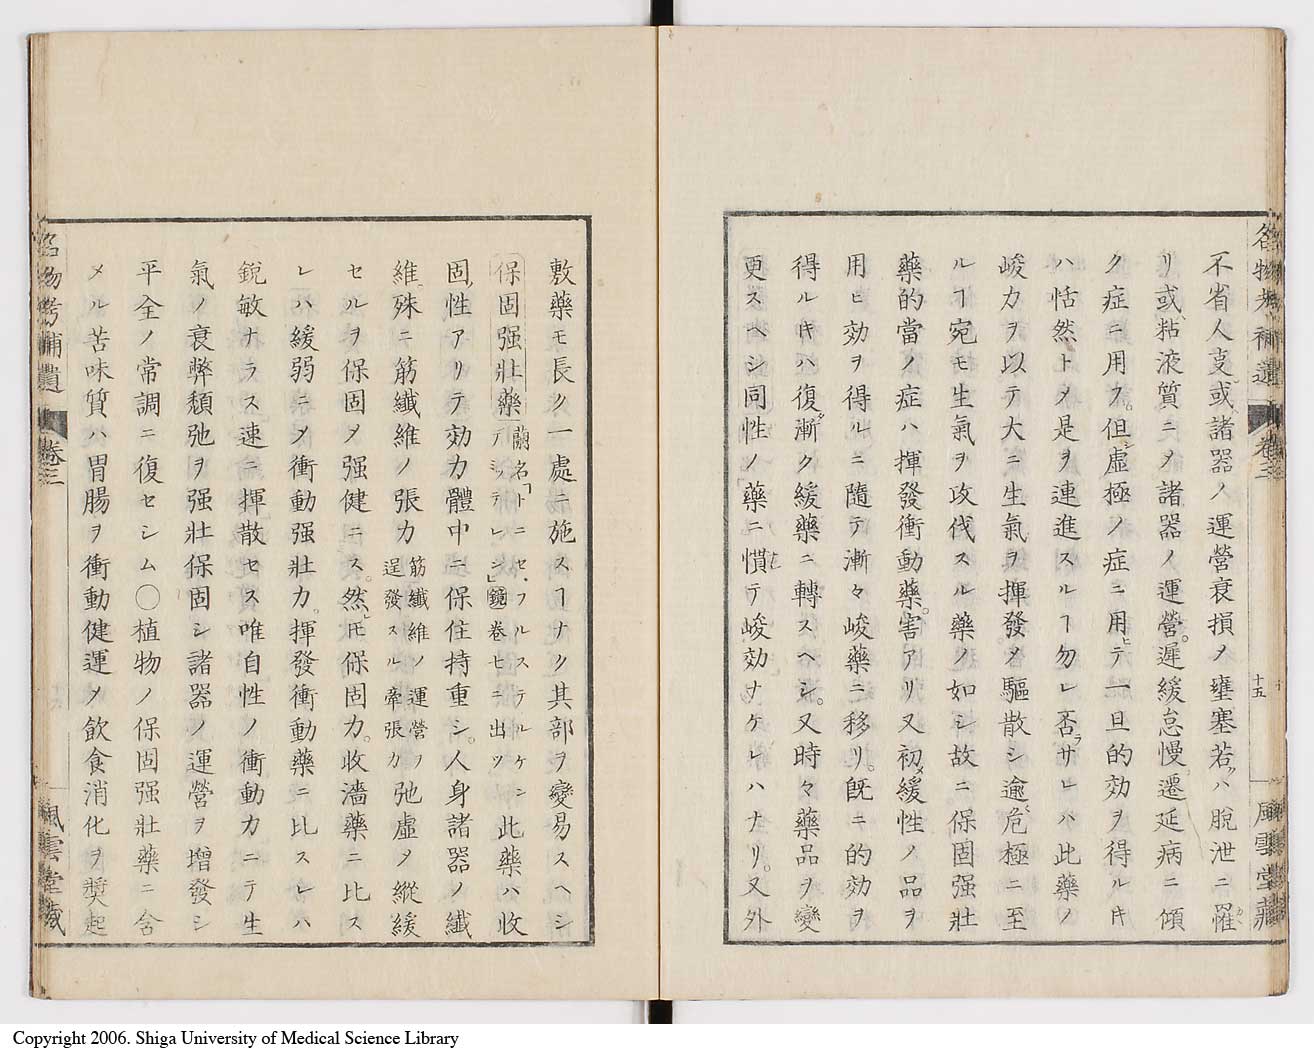 名物考補遺 卷三 十五 風雲堂藏
不省人事或諸器ノ運營衰損メ壅塞若クハ脱泄ニ罹
リ或粘液質ニメ諸器ノ運營遲緩怠慢遷延病ニ傾
ク症ニ用フ但シ虚極ノ症ニ用ヒテ一旦的効ヲ得ルキ
ハ恬然トメ是ヲ連進スルヿ勿レ否ラサレハ此藥ノ
峻力ヲ以テ大ニ生氣ヲ揮發メ驅散シ逾危極ニ至
ルヿ宛モ生氣ヲ攻伐スル藥ノ如シ故ニ保固强壯
藥的當ノ症ハ揮發衝動藥害アリ又初メ緩性ノ品ヲ
用ヒ効ヲ得ルニ隨テ漸々峻藥ニ移リ既ニ的効ヲ
得ルキハ復漸ク緩藥ニ轉スヘシ又時々藥品ヲ變
更スヘシ同性ノ藥ニ慣テ峻効ナケレハナリ又外
敷藥モ長ク一處ニ施スヿナク其部ヲ變易スヘシ
保固强壯藥 蘭名「トニセ、フルステルケンデ ミッテレン」鏡卷七ニ出ツ 此藥ハ收
固性アリテ効力體中ニ保住持重シ人身諸器ノ纎
維殊ニ筋纎維ノ張力 筋纎維ノ運營ヲ逞發スル牽張力 弛虚メ縱緩
セルヲ保固メ强健ニス然ヒ保固力收濇藥ニ比ス
レハ緩弱ニメ衝動强壯力揮發衝動藥ニ比スレハ
銳敏ナラス速ニ揮散セス唯自性ノ衝動力ニテ生
氣ノ衰弊頽弛ヲ强壯保固シ諸器ノ運營ヲ增發シ
平全ノ常調ニ復セシム〇植物ノ保固强壯藥ニ含
メル苦味質ハ胃腸ヲ衝動健運メ飲食消化ヲ奬起
名物考補遺 卷三 風雲堂藏